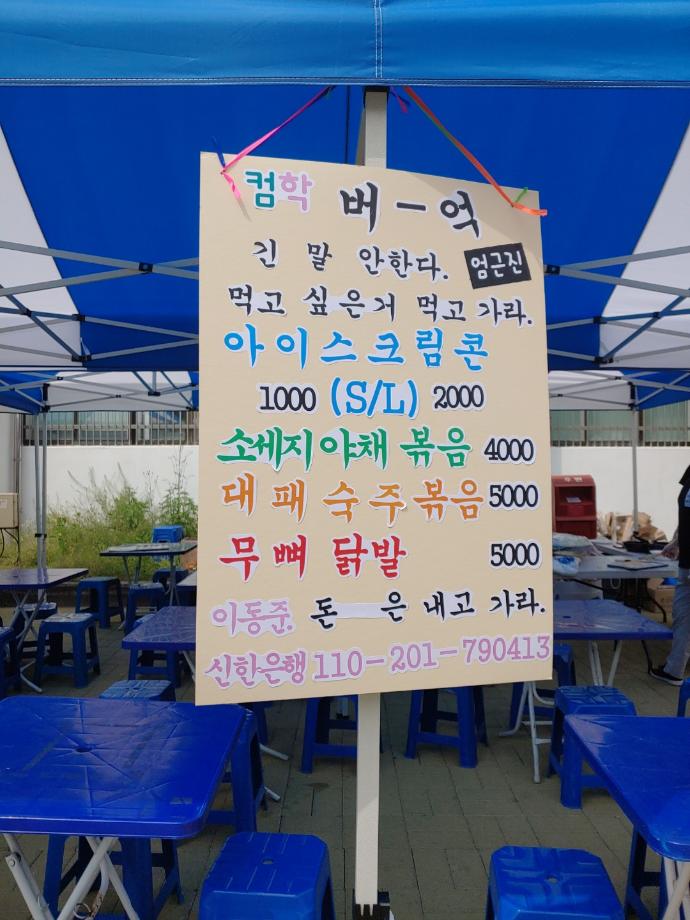 컴학 버-억
긴 말 안한다. 엄근진
먹고 싶은거 먹고 가라.
아이스크림콘
1000 (S/L) 2000
소세지야채 볶음 4000
대패숙주볶음 5000
무뼈 닭발 5000
이동준. 돈 은 내고 가라.
신한은행 110-201-790413